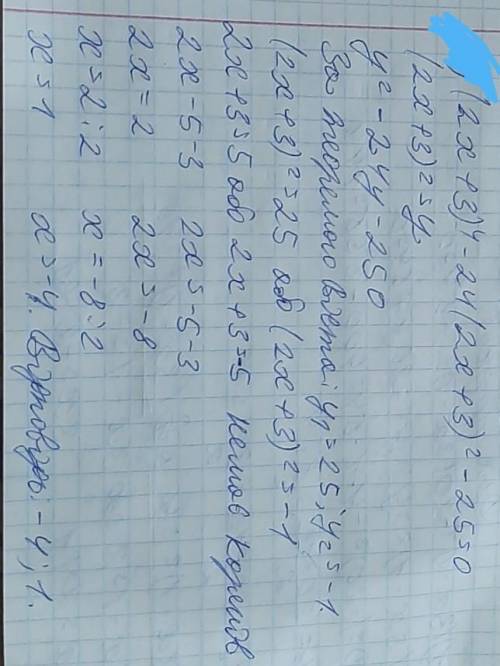 (2x+3)⁴-24(2x+3)²-25=0
(2x+3)²=y
y²-24y-25=0
За теоремою Вієта: y₁=25; y₂=-1.
(2x+3)²=25 або (2x+3)²=-1
2x+3=5 або 2x+3=-5 немає коренів
2x=5-3 2x=-5-3
2x=2 2x=-8
x=2:2 x=-8:2
x=1 x=-4. Відповідь: -4; 1.